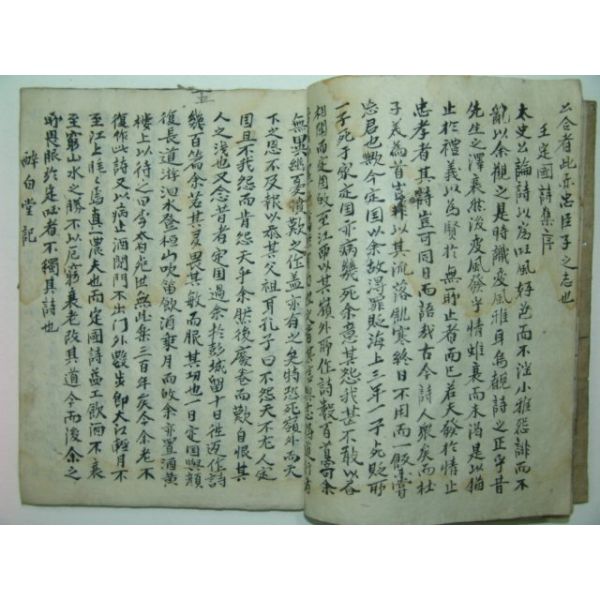 公合者此亦忠臣子之志也
王定國詩集序
太史公論詩以為国風好色而不淫小雅怨誹而不
亂以余觀之是時識変風雅耳烏觀詩之正乎昔
先生之澤衰然後変風發乎情雖衰而未渴是以猶
止於禮義以為賢於無所止者而已若夫發於情止
忠孝者其詩豈可同日而語哉古今詩人衆矣而杜
子美為首豈非以其流落飢寒終日不用而一飯嘗
忘君也歟今定国以余故得罪貶海上三年一子死貶所
一子死于家定国亦病幾死余意其怨我甚不敢以書
相聞而定国歸至江西以其嶺外所作詩數百首寄余
無異幽憂憤歎之作盖亦有之矣特恐死嶺外而天
下之恩不及報以忝其父祖耳孔子曰不怨天不尤人定
国且不我怨而肯怨天乎余然後廢卷而歎自恨其
人之淺也又念昔者定国過余於彭城留十日徃返作詩
幾百篇余苦其多畏其敏而服其功也一日定国與顔
復長道游泗水登桓山吹笛飲酒乗月而故余亦置酒黄
樓上以待之曰李太白死世無此樂三百年矣今余老不
復作此詩又以病止酒閉門不出門外數步卽大江經月不
至江上眊々焉真一農夫也而定國詩益工飲酒不衰
至窮山水之勝不以厄窮衰老改其道今而後余之
所畏服於定國者不獨其詩也
醉白堂記